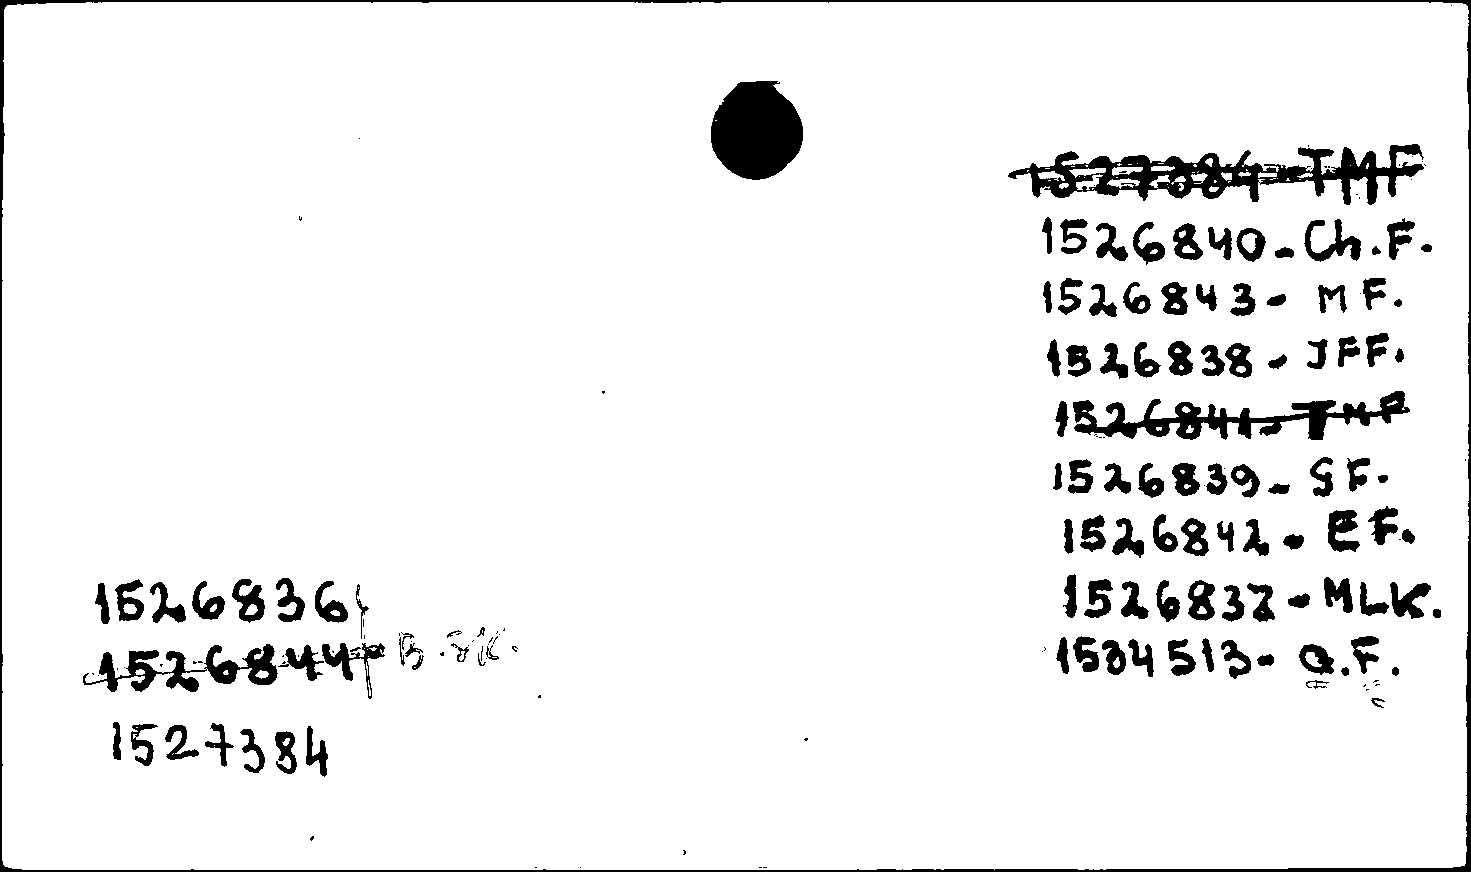 1527384-TMF
1526840-Ch.F.
1526843- MF.
1526838- JFF.
1526841- TMF
1526839- SF.
1526842- EF.
1526837-MLK.
1534513- G.F.
1526836
1526844 B.SK.
1527384